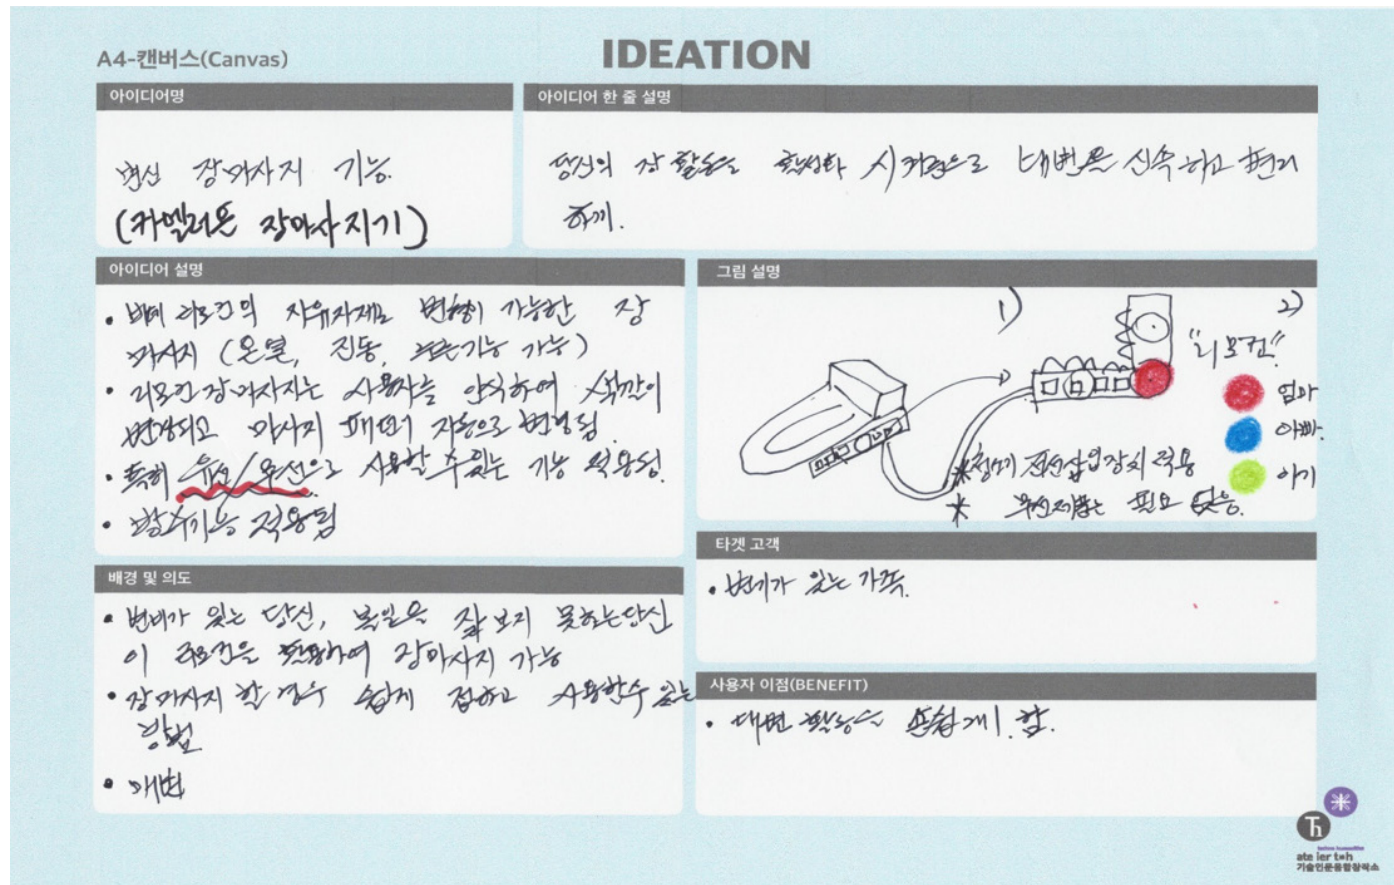 A4-캔버스(Canvas)
IDEATION
아이디어명
변신 장마사지 기능.
(카멜레온 장마사지기)
아이디어 한 줄 설명
당신의 장 활동을 활성화 시켜줌으로 대변을 신속하고 편리
하게.
아이디어 설명
• 비데 리모컨의 자유자재로 변형이 가능한 장
마사지 (온열, 진동, 기능 가능)
• 리모컨 장마사지는 사용자를 인식하여 색깔이
변경되고 마사지 패턴이 자동으로 변경됨.
• 특히 유선/무선으로 사용할 수 있는 기능 적용성.
• 방수기능 적용됨
그림 설명
1)
2)
"리모컨"
엄마
아빠.
아기
* 청소기 전선삽입장치 적용
* 무선제품는 필요 없음.
배경 및 의도
• 변비가 있는 당신, 볼일을 잘 보지 못하는 당신
이 리모컨을 활용하여 장마사지 가능
• 장마사지 할 경우 쉽게 접하고 사용할수 있는
방법
• 대변
타겟 고객
• 변비가 있는 가족.
사용자 이점(BENEFIT)
• 대변 활동을 손쉽게 함.
Th
ate ier t*h
기술인문융합창작소